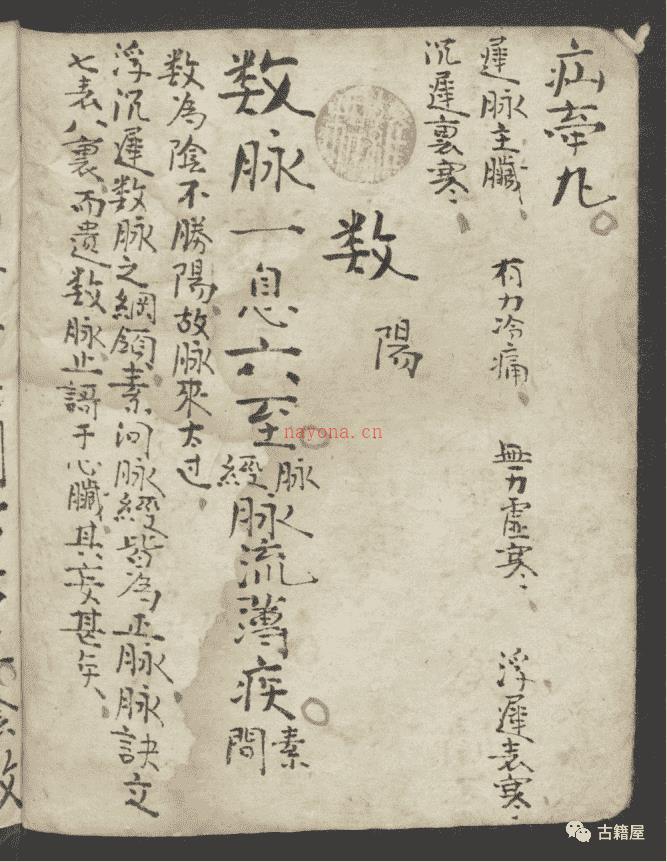 疝牽丸
遲脉主臟 有力冷痛 無力虛寒 浮遲表寒
沉遲裏寒
数 陽
数脉一息六至 脉經 脉流薄疾 素問
数為陰不勝陽故脉來太过
浮沉遲数脉之綱領素问脉經皆為正脉脉訣立
七表八裏而遗数脉止謌于心臟其妄甚矣
nayona.cn
古籍屋